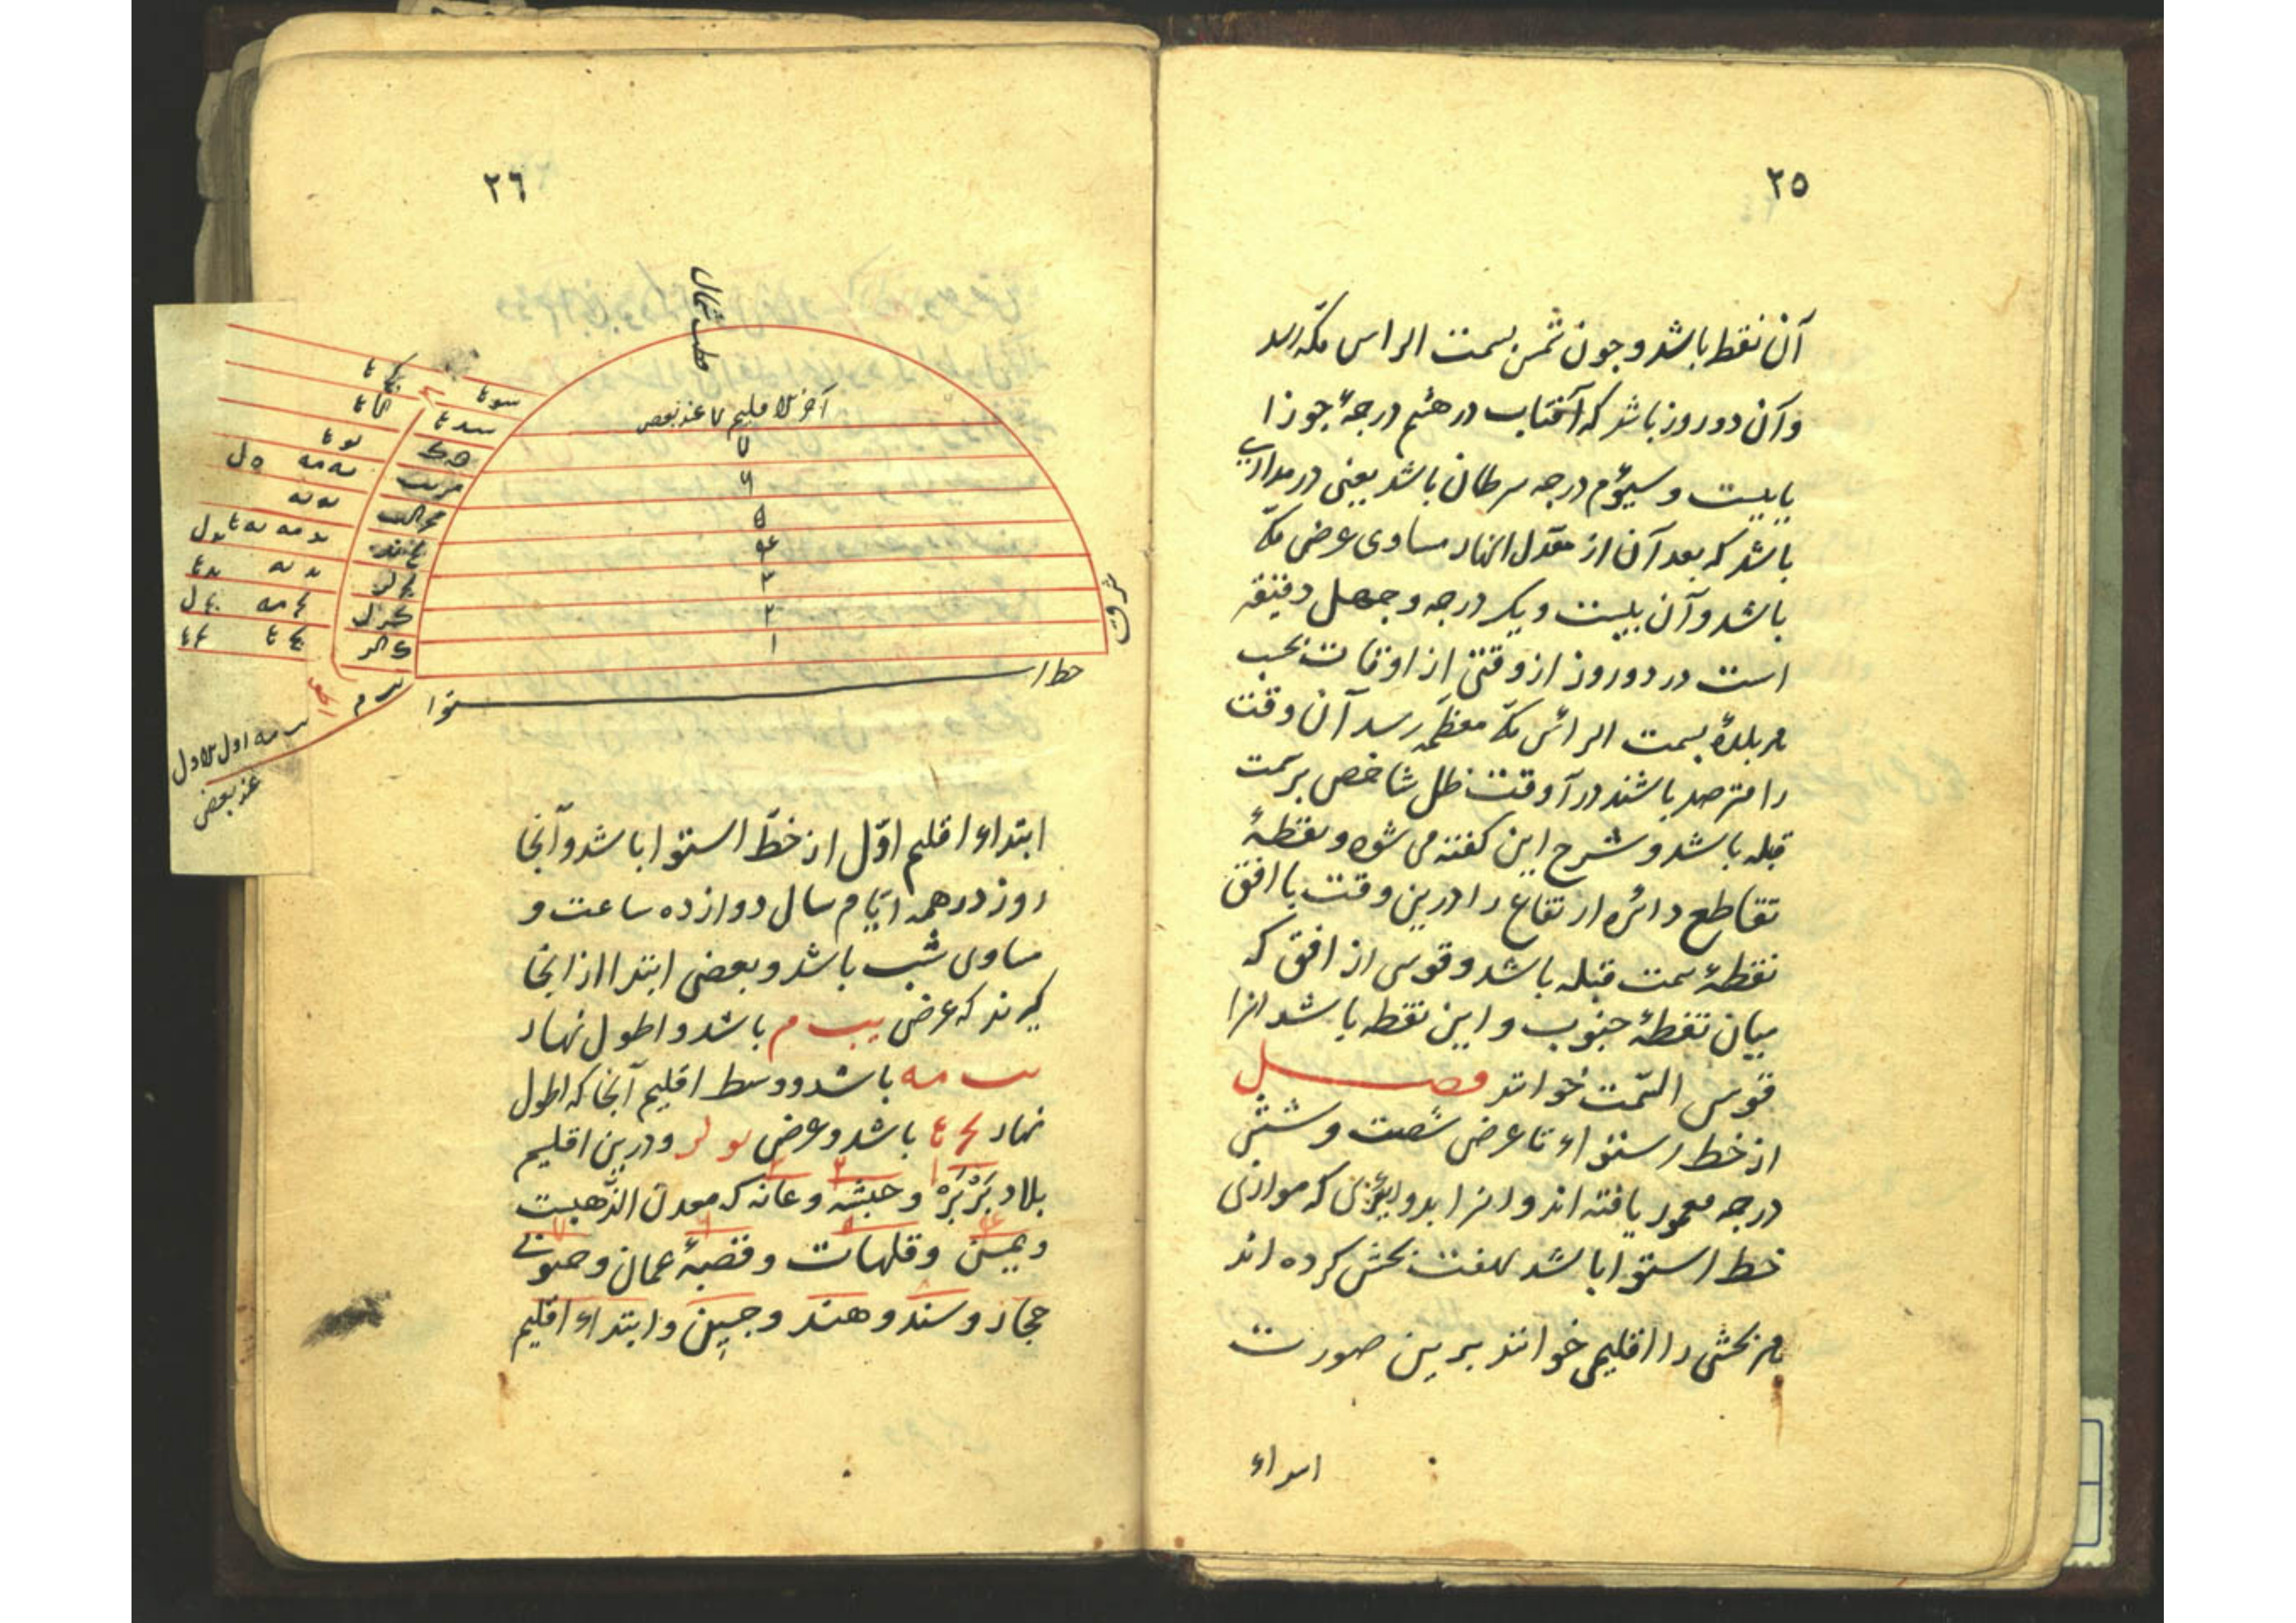 ٢٥
آن نقط باشد و چون شمس بسمت الراس مکه رسد
وآن دو روز باشد که آفتاب در هشتم درجهٔ جوزا
یا بیست و سیؤم درجه سرطان باشد یعنی در مداری
باشد که بعد آن از معدل النهار مساوی عرض مکه
باشد وآن بیست و یک درجه و چهل دقیقه
است در دو روز از وقتی از اوقات نحب
هر بلدهٔ بسمت الرأس مکه معظمه رسد آن وقت
را مترصد باشند در آنوقت ظل شاخص بر سمت
قبله باشد و شرح این گفته می شود و نقطهٔ
تقاطع دائره ارتفاع را درین وقت با افق
نقطهٔ سمت قبله باشد و قوسی از افق که
میان نقطهٔ جنوب و این نقطه باشد انرا
قوس السّمت خوانند فصـــل
از خط استواء تا عرض شصت و شش
درجه معمور یافته اند و انرا بدوایری که موازی
خط استوا باشد بهفت بخش کرده اند
هر بخشی را اقلیمی خوانند برین صورت
ابتداء
٢٦
قطب شمال
آخر الاقلیم ٧ عند بعض
٧
٦
۵
۴
٣
٢
١
شرق
خط استوا
اول الاول
عند بعض
ابتداء اقلیم اوّل از خطّ استوا باشد وآنجا
روز در همه ایّام سال دوازده ساعت و
مساوی شب باشد و بعضی ابتدا از انجا
گیرند که عرض یب م باشد و اطول نهار
یب مه باشد و وسط اقلیم آنجا که اطول
نهار یج ع باشد و عرض یو لر ودرین اقلیم
بلاد بَرْبَرَه و حبشه و عانه که معدن الذّهبست
و یمن و قلهات و قصبهٔ عمان و جنوب
حجاز و سند و هند و چین و ابتداء اقلیم